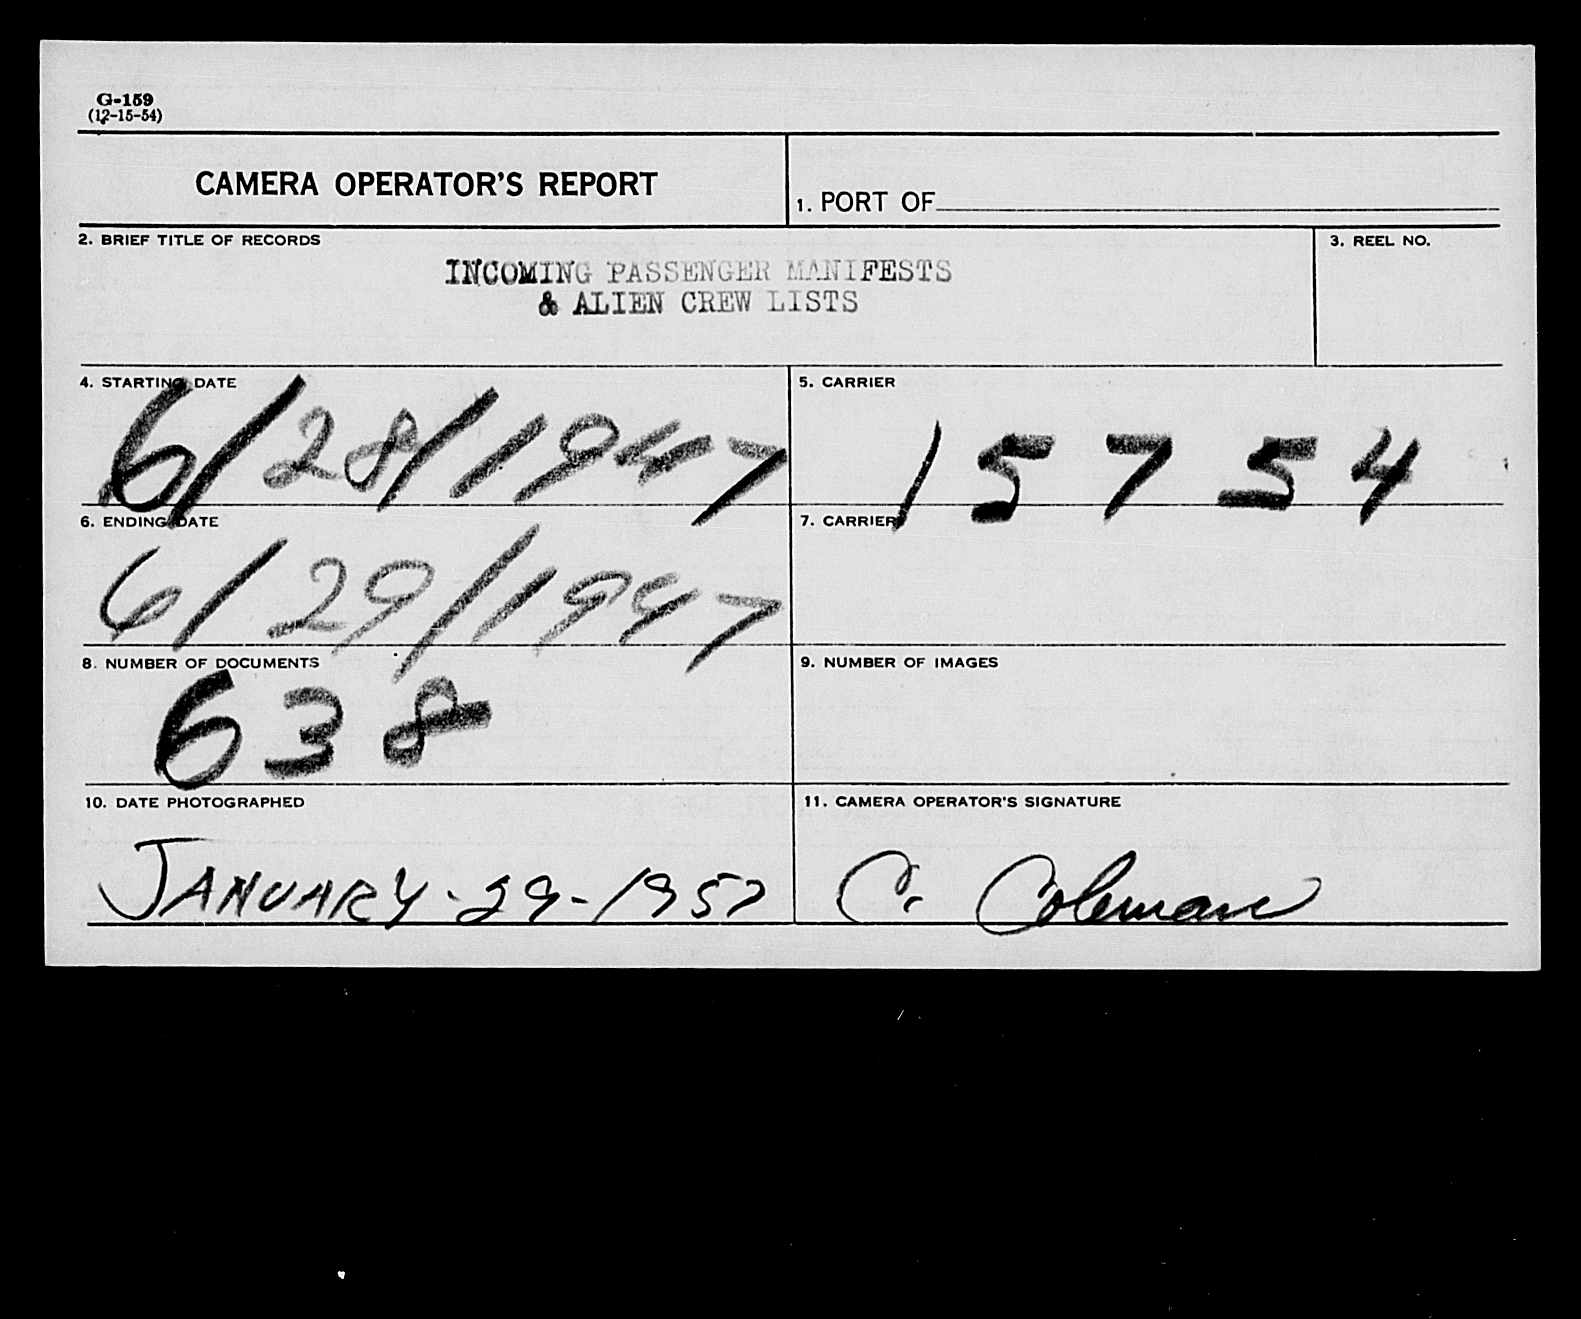 G-159
(12-15-54)
CAMERA OPERATOR'S REPORT
1. PORT OF
2. BRIEF TITLE OF RECORDS
3. REEL NO.
INCOMING PASSENGER MANIFESTS
& ALIEN CREW LISTS
4. STARTING DATE
6/28/1947
5. CARRIER
15754
6. ENDING DATE
6/29/1947
7. CARRIER
8. NUMBER OF DOCUMENTS
638
9. NUMBER OF IMAGES
10. DATE PHOTOGRAPHED
JANUARY-29-1957
11. CAMERA OPERATOR'S SIGNATURE
C. Coleman